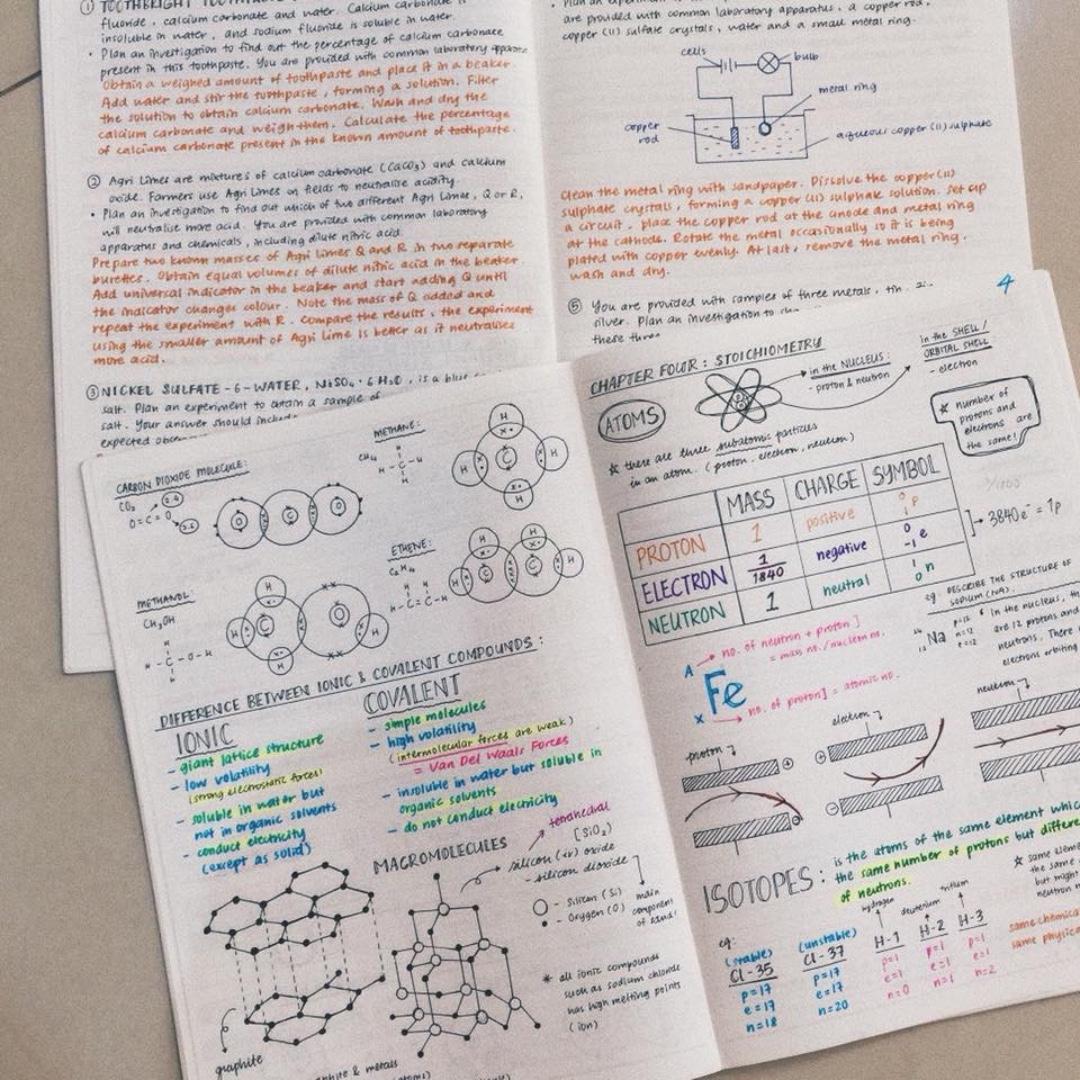 ① TOOTHBRIGHT
fluoride, calcium carbonate and water. Calcium carbonate is
insoluble in water, and sodium fluoride is soluble in water.
• Plan an investigation to find out the percentage of calcium carbonate
present in this toothpaste. You are provided with common laboratory apparatus
Obtain a weighed amount of toothpaste and place it in a beaker.
Add water and stir the toothpaste, forming a solution. Filter
the solution to obtain calcium carbonate. Wash and dry the
calcium carbonate and weigh them. Calculate the percentage
of calcium carbonate present in the known amount of toothpaste.
② Agri Limes are mixtures of calcium carbonate (CaCO₃) and calcium
oxide. Farmers use Agri Limes on fields to neutralise acidity.
• Plan an investigation to find out which of two different Agri Limes, Q or R,
will neutralise more acid. You are provided with common laboratory
apparatus and chemicals, including dilute nitric acid.
Prepare two known masses of Agri Limes Q and R in two separate
burettes. Obtain equal volumes of dilute nitric acid in the beaker.
Add universal indicator in the beaker and start adding Q until
the indicator changes colour. Note the mass of Q added and
repeat the experiment with R. Compare the results, the experiment
using the smaller amount of Agri Lime is better as it neutralises
more acid.
③ NICKEL SULFATE-6-WATER, NiSO₄·6H₂O, is a blue
salt. Plan an experiment to obtain a sample of
salt. Your answer should
expected
are provided with common laboratory apparatus, a copper rod,
copper (II) sulfate crystals, water and a small metal ring.
cells
bulb
metal ring
copper
rod
aqueous copper (II) sulphate
Clean the metal ring with sandpaper. Dissolve the copper (II)
sulphate crystals, forming a copper (II) sulphate solution. Set up
a circuit, place the copper rod at the anode and metal ring
at the cathode. Rotate the metal occasionally so it is being
plated with copper evenly. At last, remove the metal ring,
wash and dry.
⑤ You are provided with samples of three metals, tin,
silver. Plan an investigation to
these
CARBON DIOXIDE MOLECULE:
CO₂
2.4
O=C=O
2.6
O C O
METHANE:
CH₄
H
H-C-H
H
H
H C H
H
ETHENE:
C₂H₄
H H
H-C=C-H
H H
C C
H H
METHANOL:
CH₃OH
H
H-C-O-H
H
H
H C O H
H
DIFFERENCE BETWEEN IONIC & COVALENT COMPOUNDS:
IONIC
- giant lattice structure
- low volatility
(strong electrostatic forces)
- soluble in water but
not in organic solvents
- conduct electricity
(except as solid)
COVALENT
- simple molecules
- high volatility
(intermolecular forces are weak)
= Van Del Waals Forces
- insoluble in water but soluble in
organic solvents
- do not conduct electricity
MACROMOLECULES
tetrahedral
[SiO₂]
silicon (iv) oxide
- silicon dioxide
- Silicon (Si)
- Oxygen (O)
main
component
of sand!
* all ionic compounds
such as sodium chloride
has high melting points
(ion)
graphite
& metals
4
CHAPTER FOUR: STOICHIOMETRY
ATOMS
in the NUCLEUS:
- proton & neutron
in the SHELL/
ORBITAL SHELL
- electron
☆ number of
protons and
electrons are
the same!
☆ there are three subatomic particles
in an atom. (proton, electron, neutron)
MASS CHARGE SYMBOL
PROTON 1 positive ⁰₁P
ELECTRON 1/1840 negative ⁰₋₁e
NEUTRON 1 neutral ¹₀n
→ 3840e⁻ = 1p
eg. DESCRIBE THE STRUCTURE OF
SODIUM (Na).
Na
p=12
n=12
e=12
In the nucleus,
are 12 protons and
neutrons. There
electrons orbiting
A → no. of neutron + proton]
= mass no./nucleon no.
Fe
x → no. of proton] = atomic no.
proton
electron
neutron
ISOTOPES: is the atoms of the same element
the same number of protons but
of neutrons.
☆ same
the same
but might
neutron
hydrogen
deuterium
tritium
eg:
(stable)
Cl-35
p=17
e=17
n=18
(unstable)
Cl-37
p=17
e=17
n=20
H-1
p=1
e=1
n=0
H-2
p=1
e=1
n=1
H-3
p=1
e=1
n=2
same
same